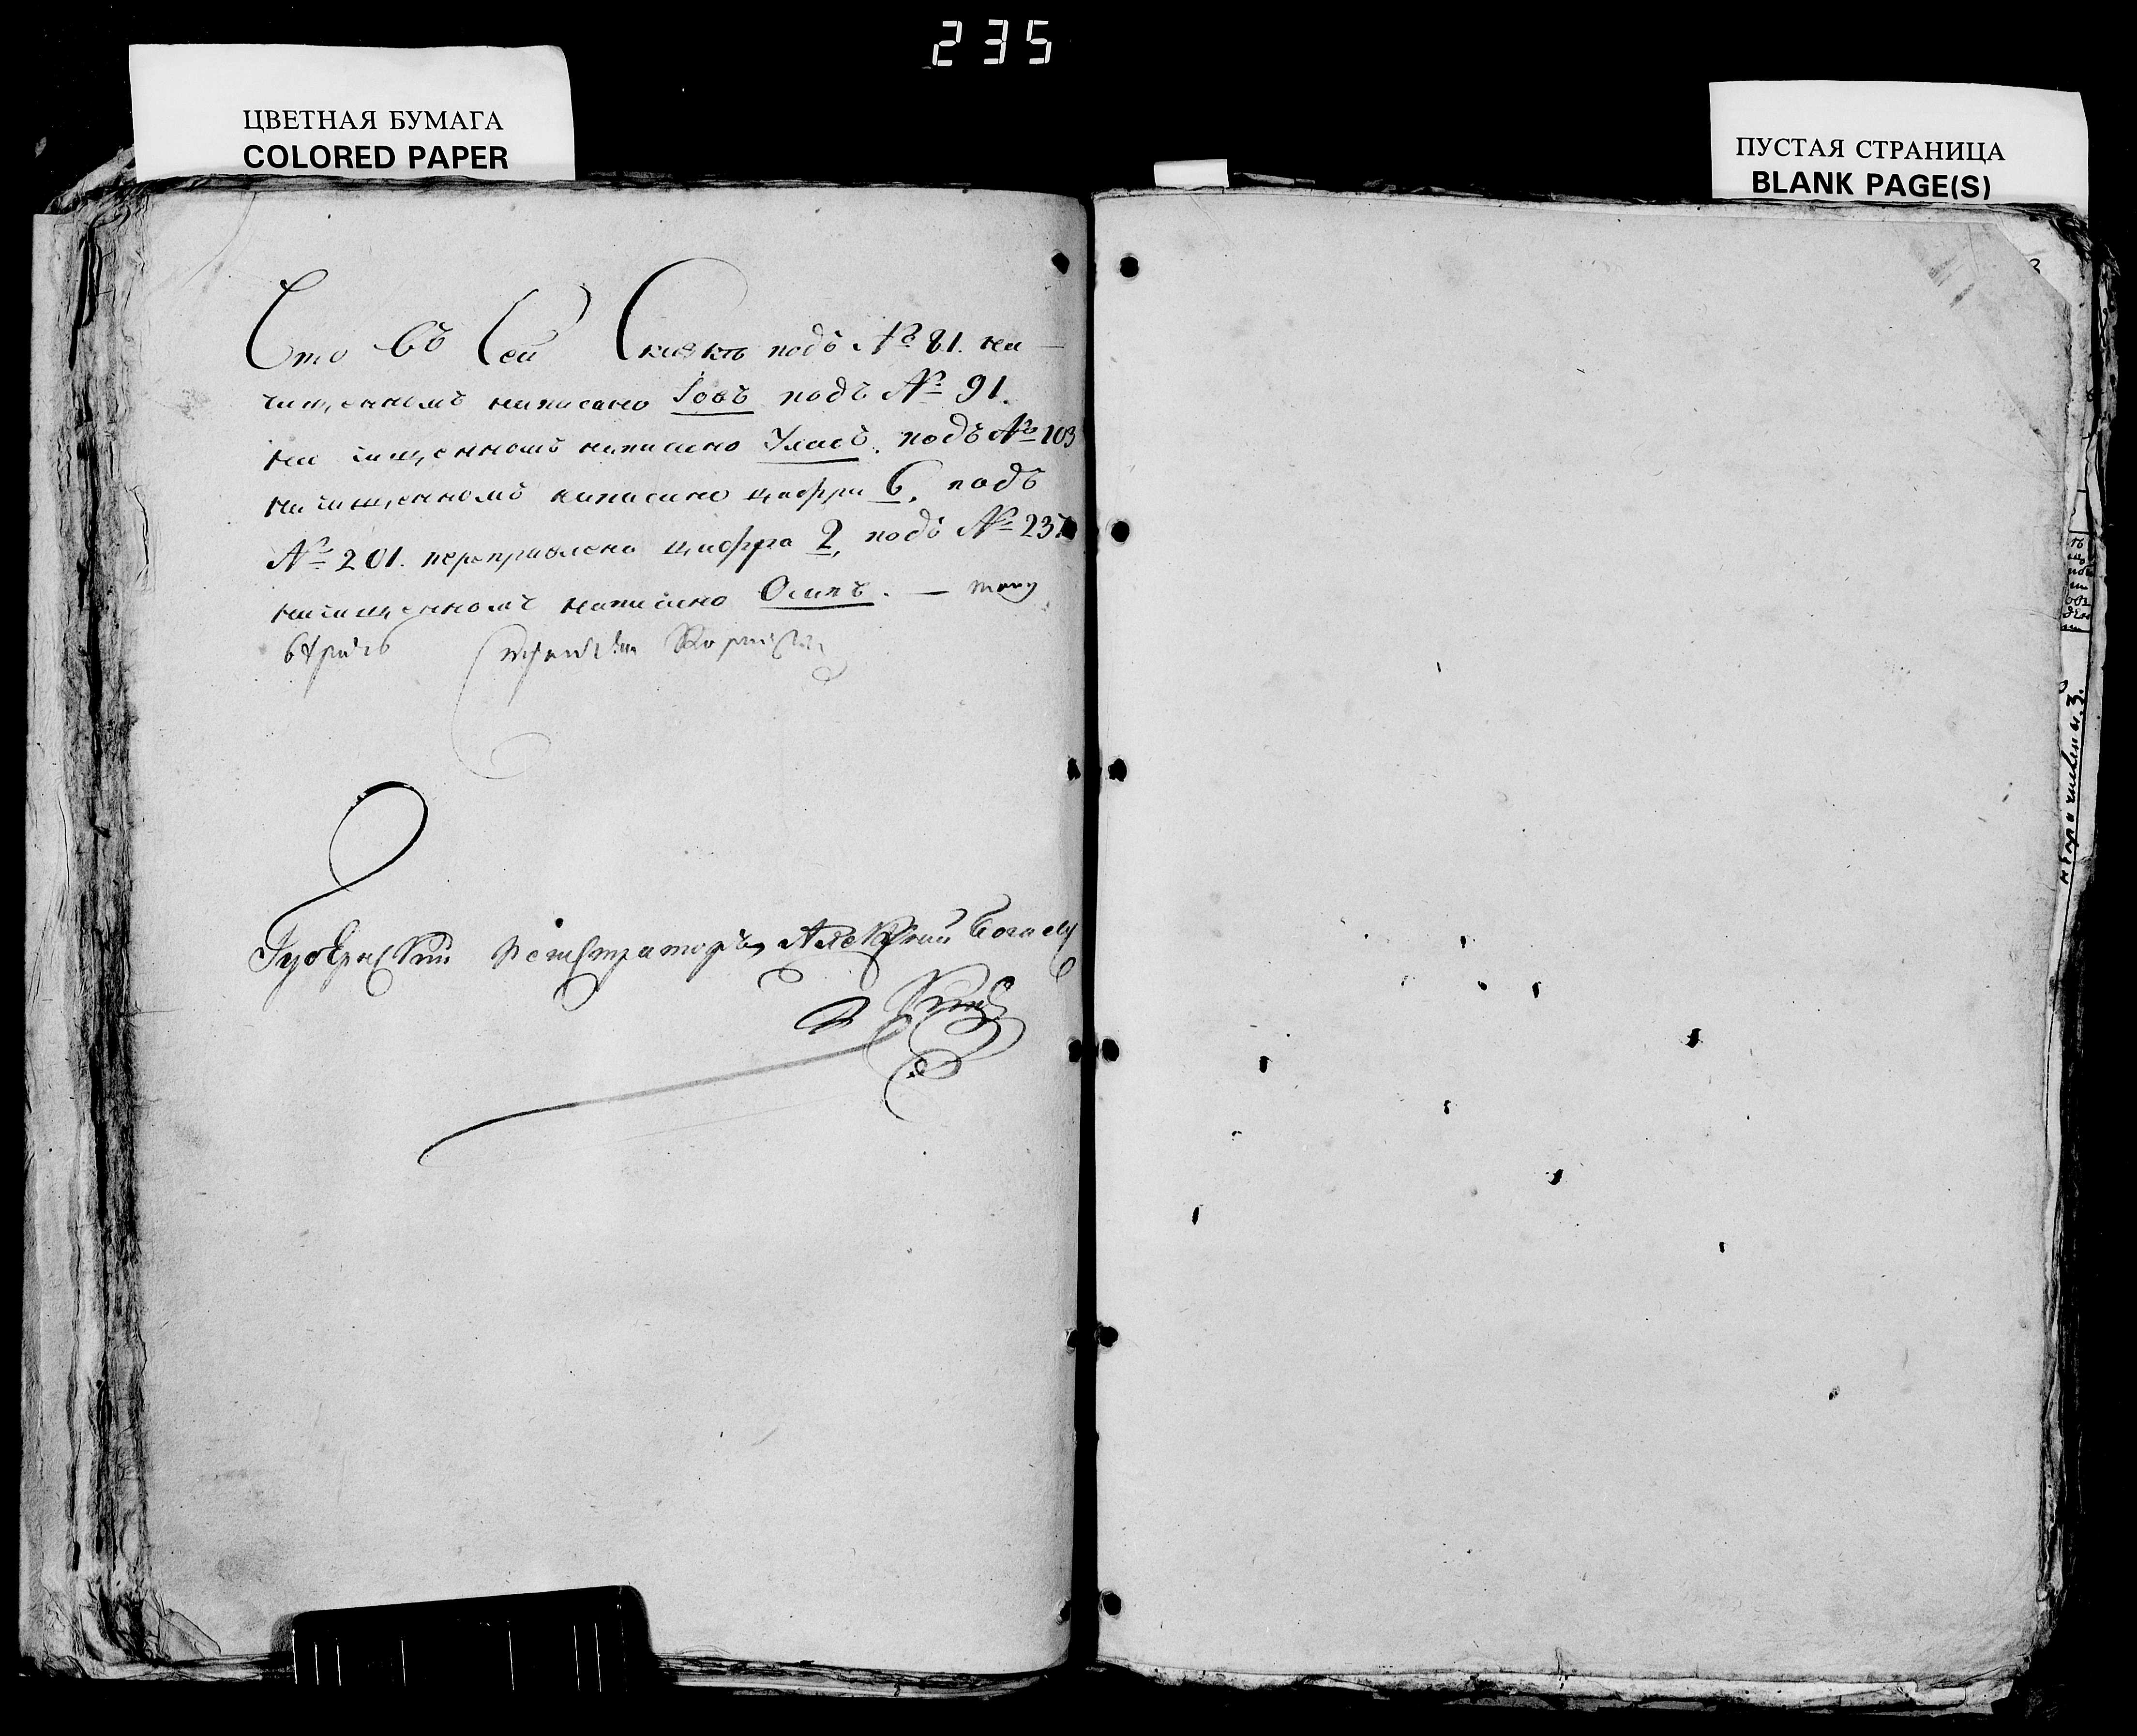 235
ЦВЕТНАЯ БУМАГА
COLORED PAPER
ПУСТАЯ СТРАНИЦА
BLANK PAGE(S)
Что въ сей Сказкѣ подъ № 81. на
чищенномъ написано Іовъ подъ № 91.
на чищенномъ написано Уласъ. подъ № 103
на чищенномъ написано цифра 6, подъ
№ 201. переправлено цифра 2, подъ № 237
на чищенномъ написано Осипъ. — тому
вѣрить
Губернский регистраторъ Алексѣй Богаев
ской